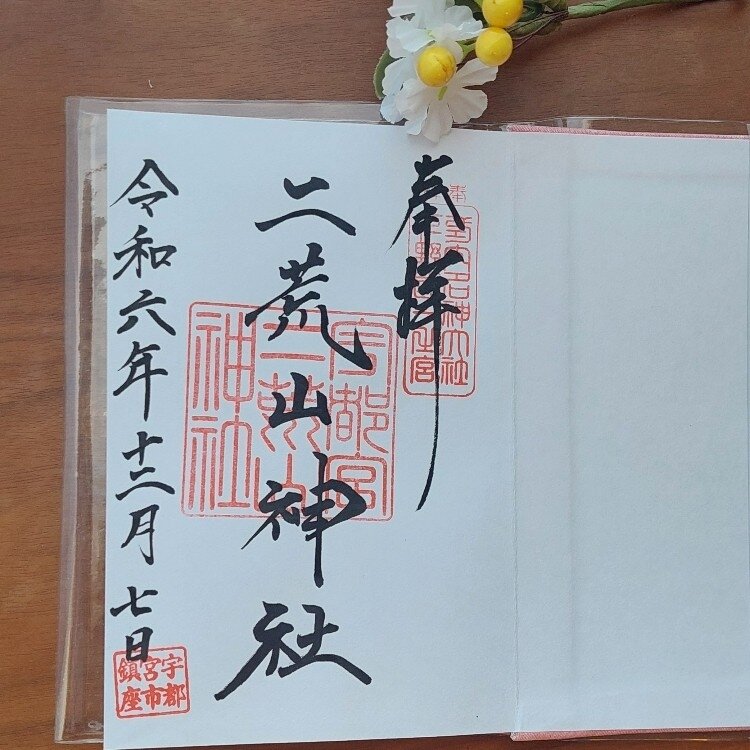 奉拝
二荒山神社
宇都宮
二荒山
神社
令和六年十二月七日
宇都
宮市
鎮座